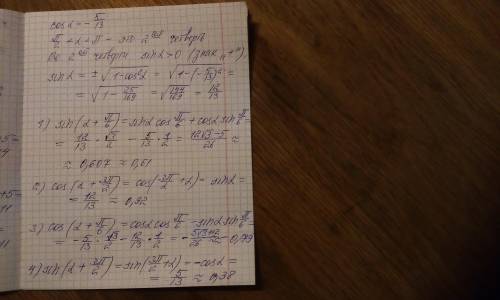 cos α = - 5/13
π/2 < α < π - это 2ой четверть
Во 2ой четверти sin α > 0 (знак "+"),
sin α = ± √(1 - cos²α) = √(1 - (-5/13)²) =
= √(1 - 25/169) = √(144/169) = 12/13
1) sin(α + π/6) = sin α cos π/6 + cos α sin π/6 =
= 12/13 · √3/2 - 5/13 · 1/2 = (12√3 - 5)/26 ≈
≈ 0,607 ≈ 0,61
2) cos(α + 3π/2) = cos(3π/2 + α) = sin α =
= 12/13 ≈ 0,92
3) cos(α + π/6) = cos α cos π/6 - sin α sin π/6 =
= - 5/13 · √3/2 - 12/13 · 1/2 = - (5√3 + 12)/26 ≈ - 0,79
4) sin(α + 3π/2) = sin(3π/2 + α) = - cos α =
= 5/13 ≈ 0,38